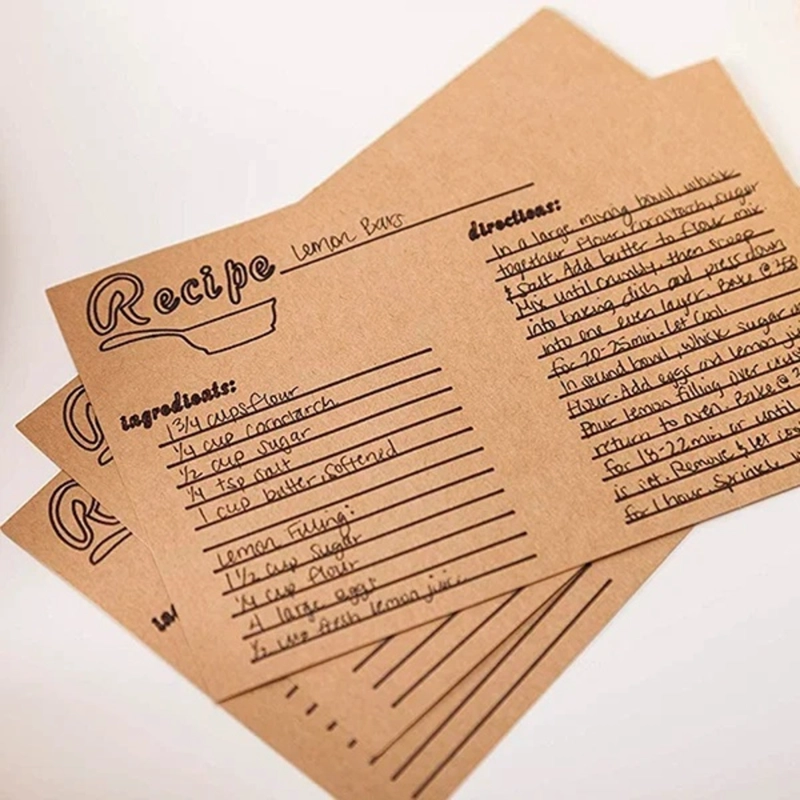 Recipe Lemon Bars
ingredients:
1 3/4 cups flour
1/4 cup cornstarch
1/2 cup sugar
1/4 tsp salt
1 cup butter, softened
Lemon Filling:
1 1/2 cup sugar
1/4 cup flour
4 large eggs
1/2 cup fresh lemon juice
directions:
In a large mixing bowl, whisk
together flour, cornstarch, sugar
& salt. Add butter to flour mix.
Mix until crumbly, then scoop
into baking dish and press down
into one even layer. Bake @ 350
for 20-25 min. Let cool.
In second bowl, whisk sugar
flour. Add eggs and lemon
Pour lemon filling over
return to oven. Bake @
for 18-22 min or until
is set. Remove & let
for 1 hour. Sprinkle
R
R